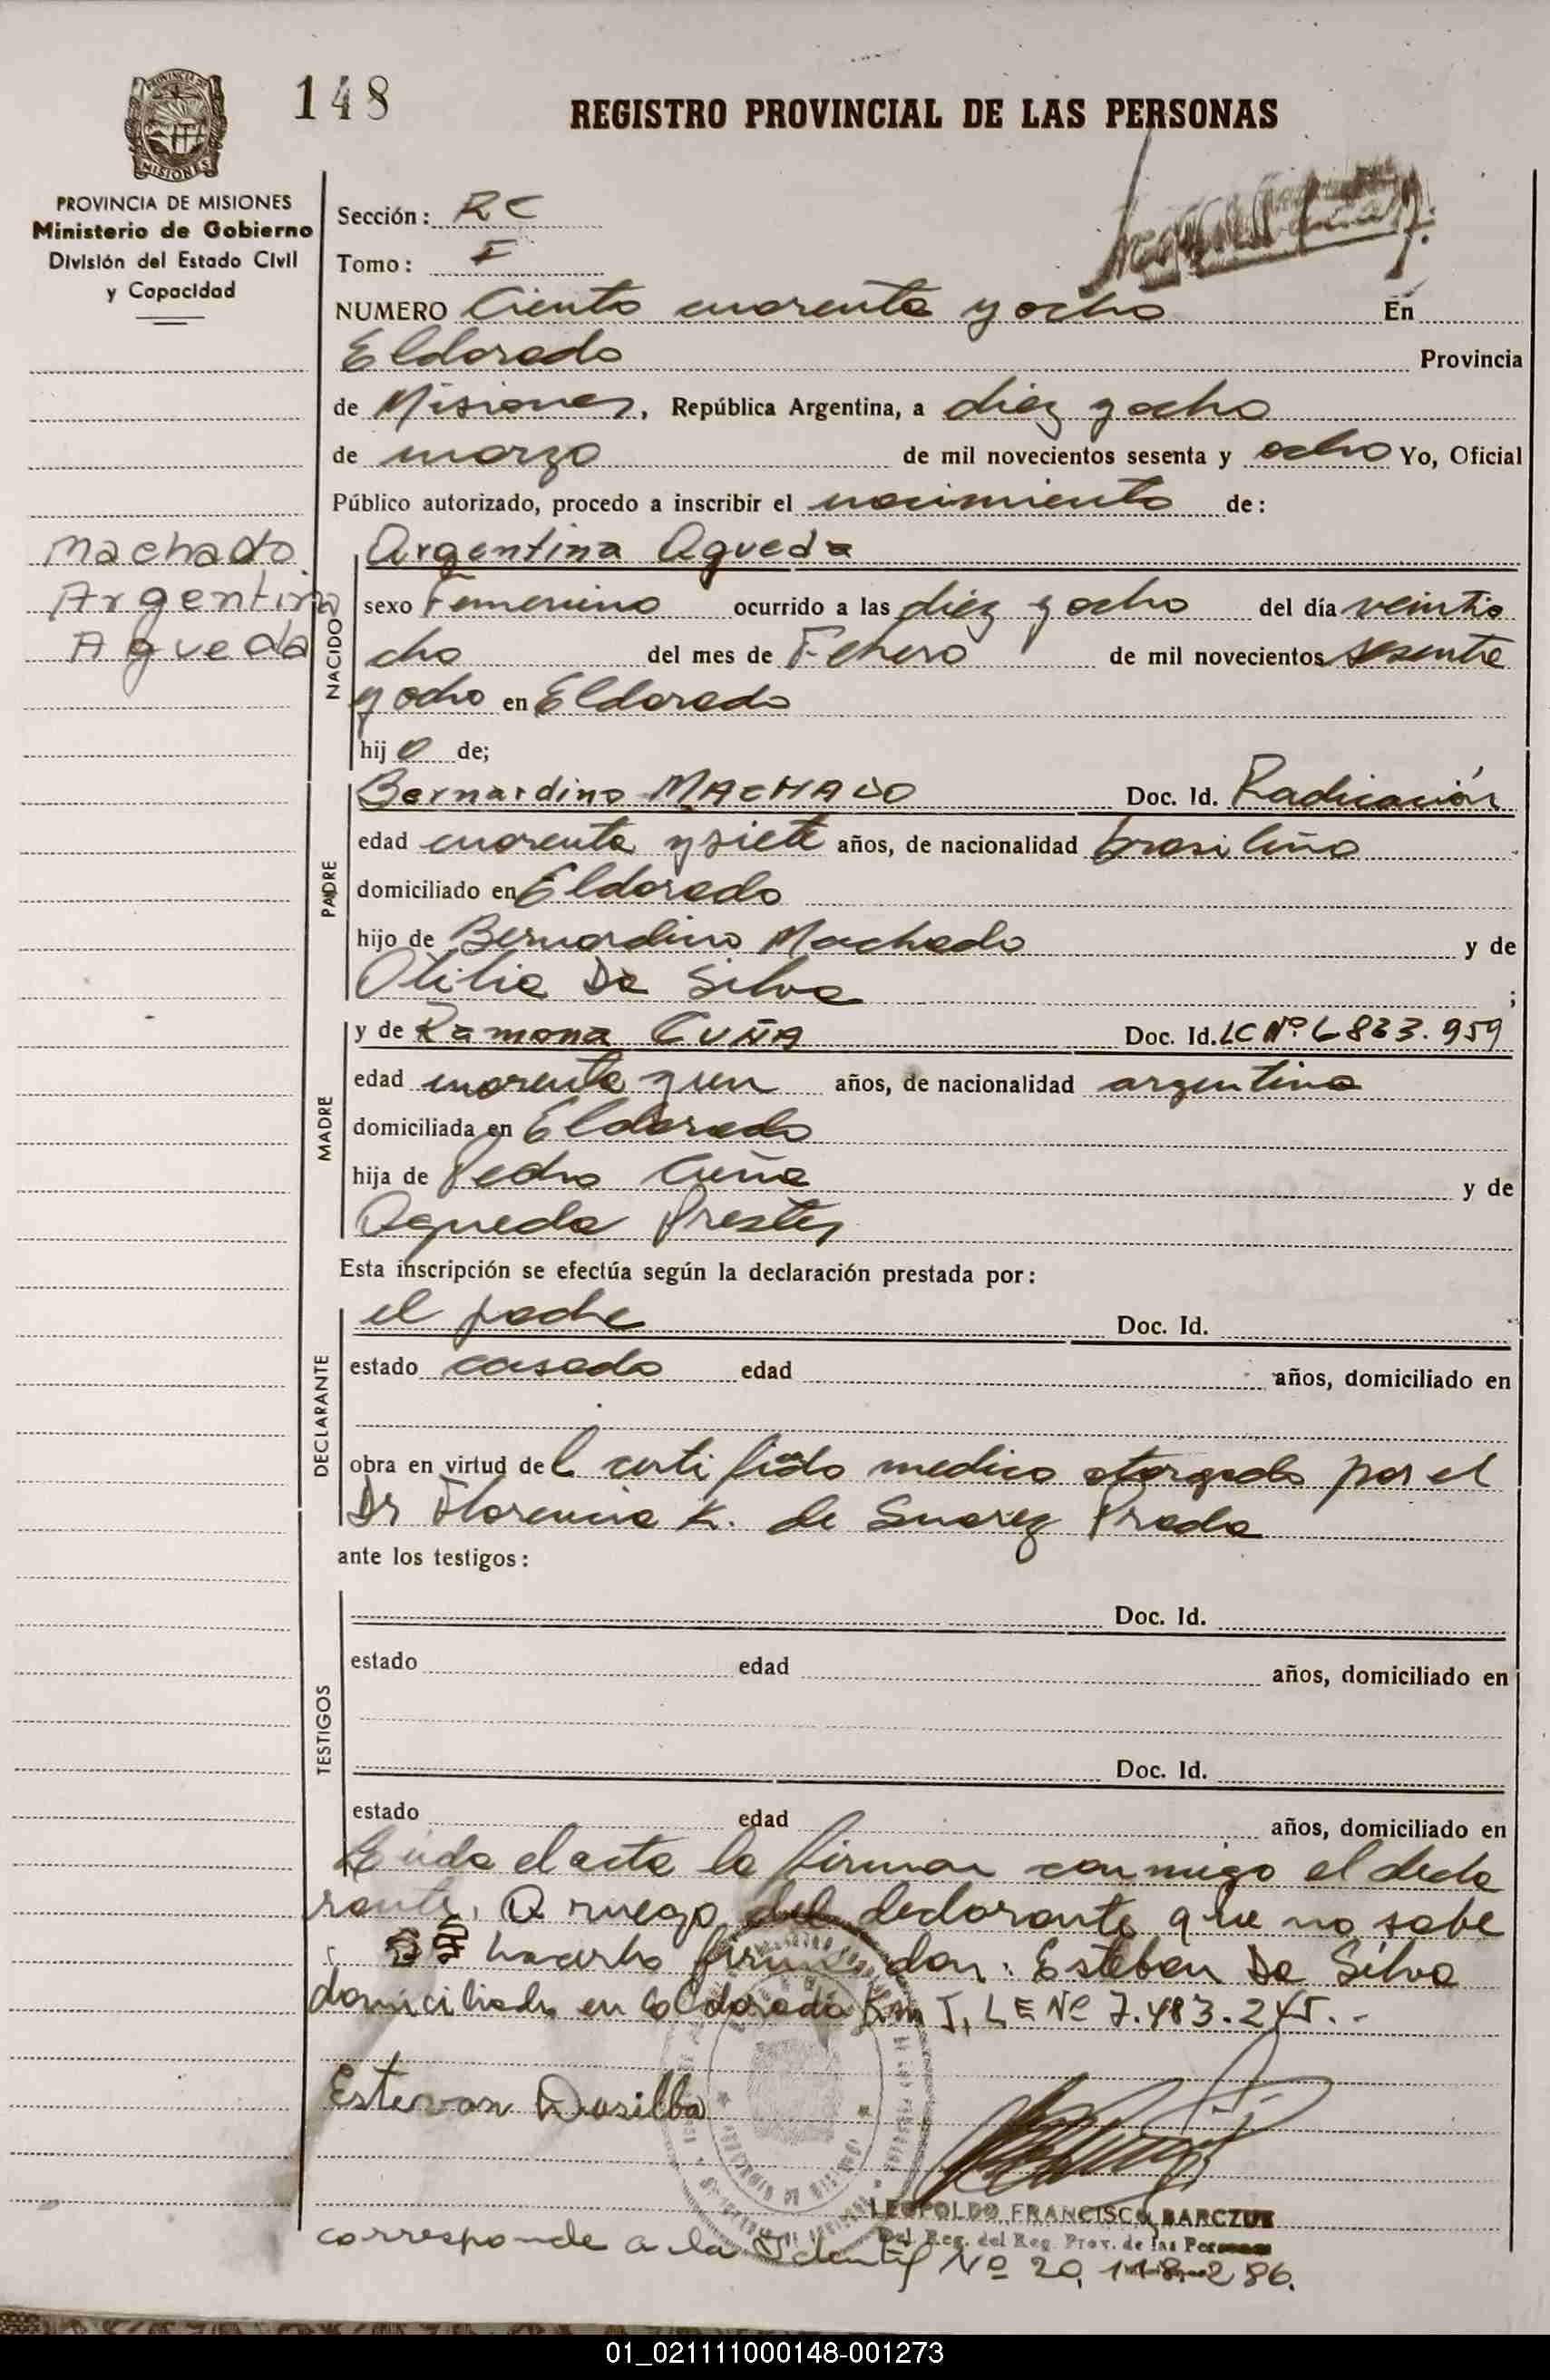 148
REGISTRO PROVINCIAL DE LAS PERSONAS
MISIONES
PROVINCIA DE MISIONES
Ministerio de Gobierno
División del Estado Civil
y Capacidad
Sección: RC
Tomo: I
NUMERO Ciento cuarenta y ocho En
Eldorado Provincia
de Misiones, República Argentina, a diez y ocho
de marzo de mil novecientos sesenta y ocho Yo, Oficial
Público autorizado, procedo a inscribir el nacimiento de:
Machado
Argentina
Agueda
NACIDO
Argentina Agueda
sexo Femenino ocurrido a las diez y ocho del día veintio
cho del mes de Febrero de mil novecientos sesenta
y ocho en Eldorado
hija de;
PADRE
Bernardino MACHADO Doc. Id. Radicación
edad cuarenta y siete años, de nacionalidad brasileña
domiciliado en Eldorado
hijo de Bernardino Machado y de
Otilia Da Silva ;
MADRE
y de Ramona CUÑA Doc. Id. LC Nº 6833.959
edad cuarenta y un años, de nacionalidad argentina
domiciliada en Eldorado
hija de Pedro Cuña y de
Agueda Prestes
Esta inscripción se efectúa según la declaración prestada por:
DECLARANTE
el padre Doc. Id.
estado casado edad años, domiciliado en
obra en virtud del certificado medico otorgado por el
Dr Florencia K. de Suarez Prada
ante los testigos:
TESTIGOS
Doc. Id.
estado edad años, domiciliado en
Doc. Id.
estado edad años, domiciliado en
Leida el acta la firman conmigo el decla
rante, A ruego del declarante que no sabe
hacerlo firma don: Esteban Da Silva
domiciliado en Eldorado Km I, LE Nº 7.483.245.-
Estevan Dasilba
LEOPOLDO FRANCISCO BARCZUK
Del. Reg. del Reg. Prov. de las Personas
corresponde a la Identif Nº 20.118.286.
01_021111000148-001273